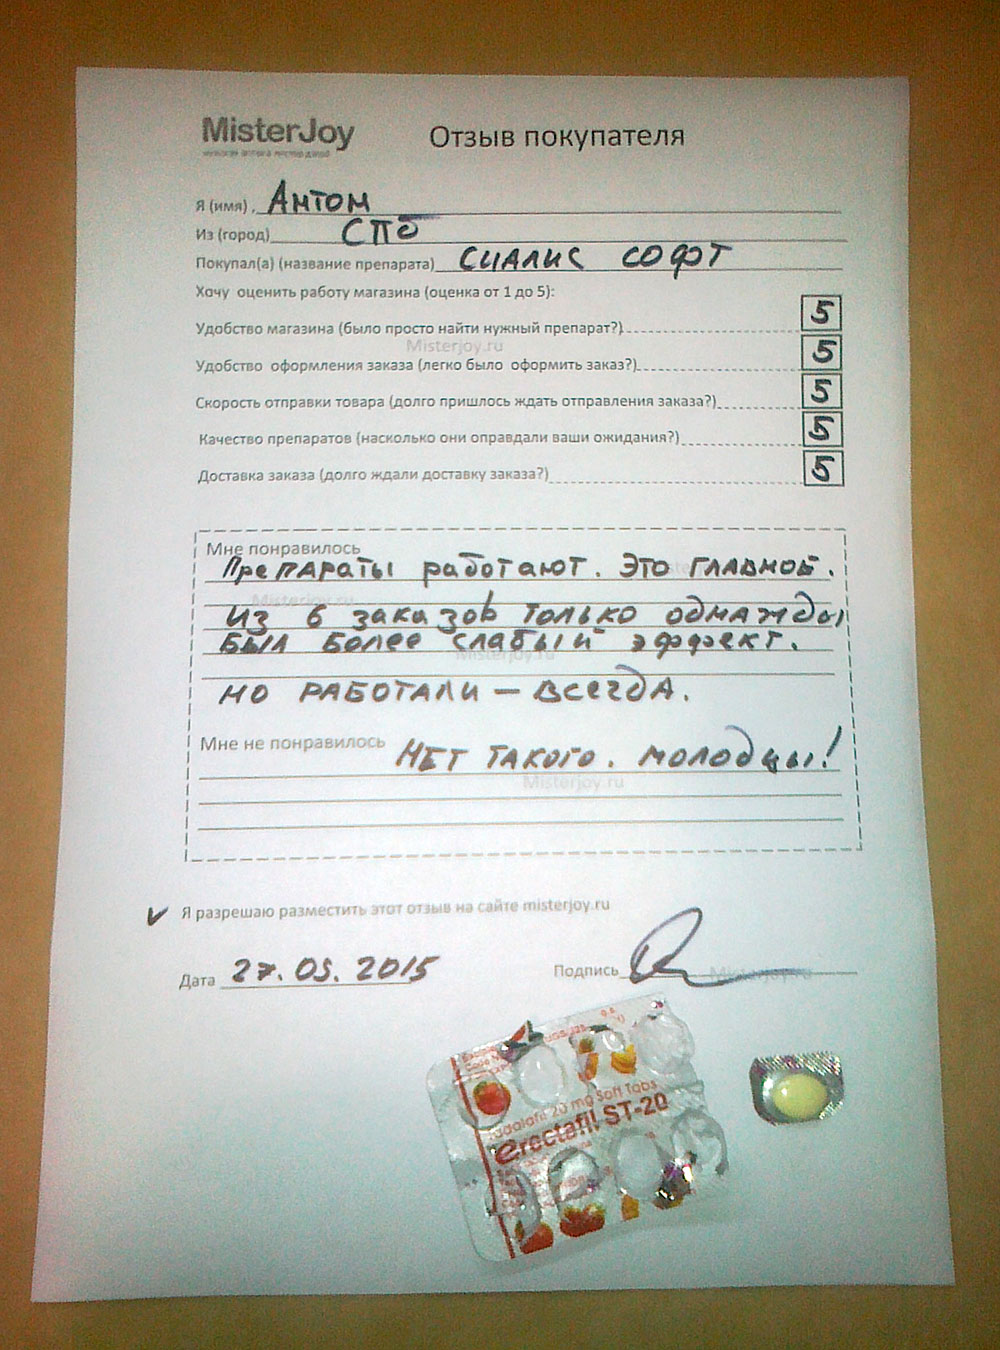 MisterJoy
Отзыв покупателя
Я (имя), Антон
Из (город) СПб
Покупал(а) (название препарата) Сиалис софт
Хочу оценить работу магазина (оценка от 1 до 5):
Удобство магазина (было просто найти нужный препарат?) 5
Misterjoy.ru
Удобство оформления заказа (легко было оформить заказ?) 5
Скорость отправки товара (долго пришлось ждать отправления заказа?) 5
Качество препаратов (насколько они оправдали ваши ожидания?) 5
Доставка заказа (долго ждали доставку заказа?) 5
Мне понравилось
Препараты работают. Это главное.
Misterjoy.ru
Из 6 заказов только однажды
был более слабый эффект.
Misterjoy.ru
Но работали – всегда.
Мне не понравилось Нет такого. Молодцы!
Misterjoy.ru
Я разрешаю разместить этот отзыв на сайте misterjoy.ru
Дата 27.05.2015
Подпись
Misterjoy.ru
Tadalafil 20 mg Soft Tabs
erectafil ST-20